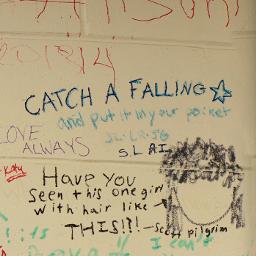 2013/14
CATCH A FALLING ☆
and put it in your pocket
LOVE
ALWAYS
SLAI
Katy
HAVE YOU
Seen this one girl
with hair like
THIS!?! —Scott Pilgrim
I can't